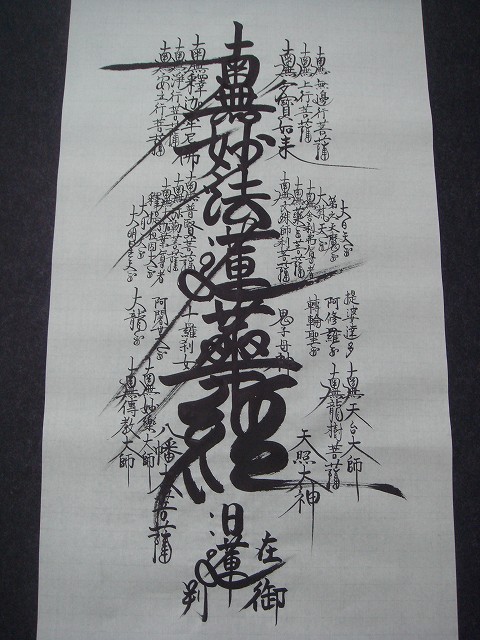 南無妙法蓮華經
南無無邊行菩薩
南無上行菩薩
南無多寶如来
南無釋迦牟尼佛
南無浄行菩薩
南無安立行菩薩
南無普賢菩薩
南無文殊師利菩薩
南無薬王菩薩
大日天王
提婆達多
阿修羅王
轉輪聖王
鬼子母神
十羅刹女
阿闍世王
大龍王
南無天台大師
南無龍樹菩薩
南無妙樂大師
南無傳教大師
天照大神
八幡大菩薩
日蓮
在御
判